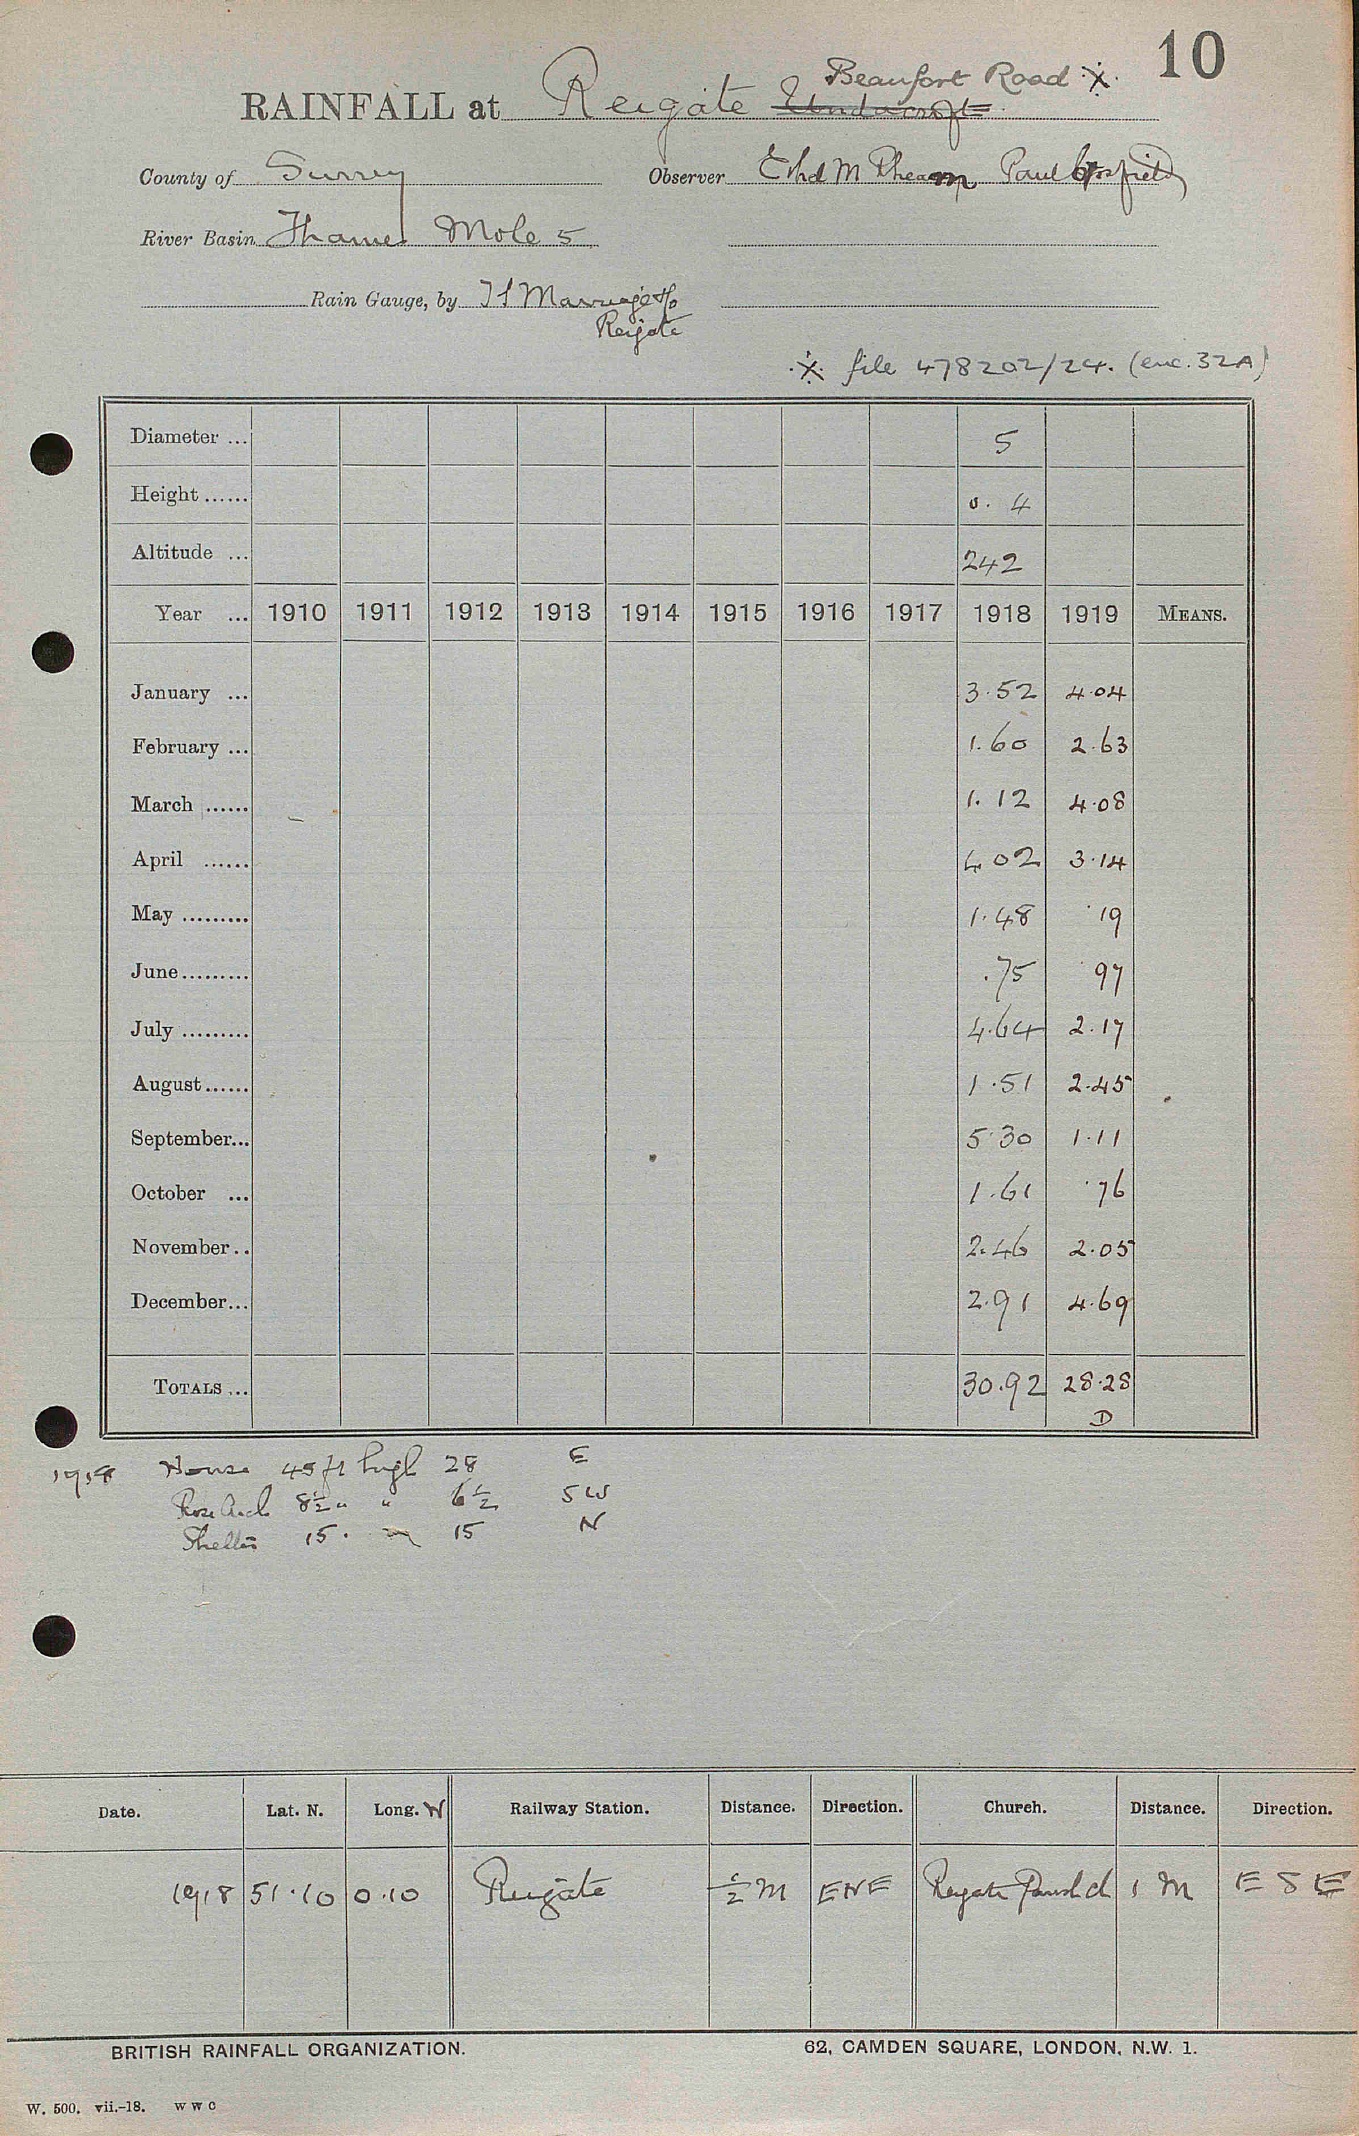 10
Beaufort Road ※
RAINFALL at Reigate
County of Surrey Observer M Paul
River Basin Thames Mole 5
Rain Gauge, by Marriage & Co
Reigate
※ file 478202/24. (enc. 32A)
Diameter ... 5
Height ...... 0. 4
Altitude ... 242
Year ... 1910 1911 1912 1913 1914 1915 1916 1917 1918 1919 MEANS.
January ... 3.52 4.04
February ... 1.60 2.63
March ...... 1.12 4.08
April ...... 4 02 3.14
May ......... 1.48 .19
June......... .75 97
July ......... 4.64 2.17
August...... 1.51 2.45
September... 5.30 1.11
October ... 1.61 .76
November.. 2.46 2.05
December... 2.91 4.69
TOTALS ... 30.92 28.28
D
1918 House 45 ft high 28 E
Rose Arch 8½ " " 6½ SW
Shelter 15. " 15 N
Date. Lat. N. Long. W Railway Station. Distance. Direction. Church. Distance. Direction.
1918 51.10 0.10 Reigate ½ M ENE Reigate Parish Ch 1 M ESE
BRITISH RAINFALL ORGANIZATION. 62, CAMDEN SQUARE, LONDON, N.W. 1.
W. 500. vii.-18. W W C